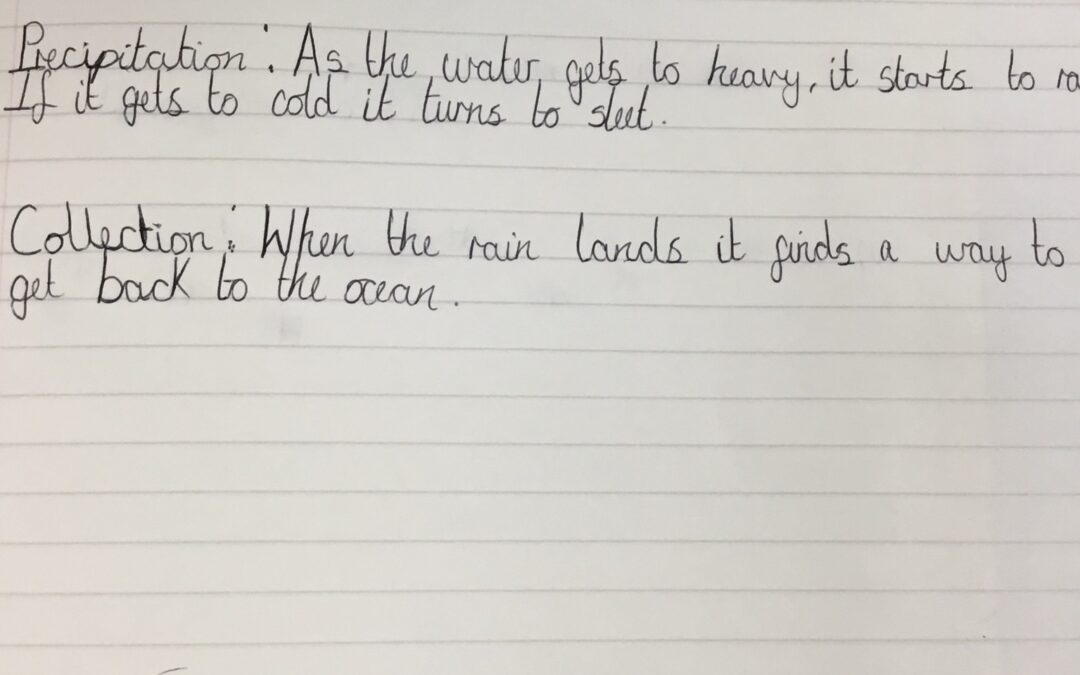 Precipitation: As the water gets to heavy, it starts to ra
If it gets to cold it turns to sleet.
Collection: When the rain lands it finds a way to
get back to the ocean.